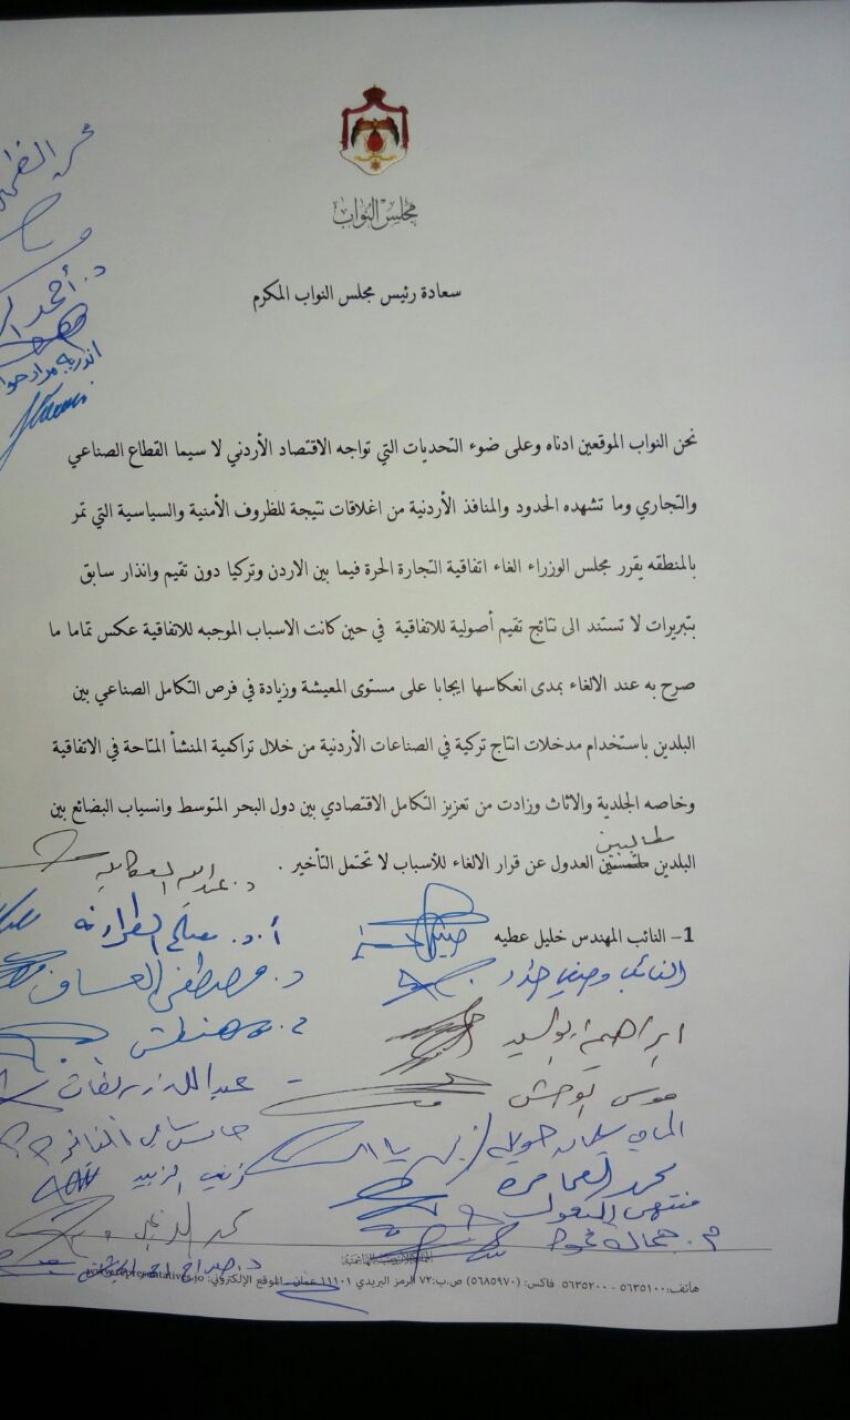 مجلس النواب
سعادة رئيس مجلس النواب المكرم
نحن النواب الموقعين ادناه وعلى ضوء التحديات التي تواجه الاقتصاد الأردني لا سيما القطاع الصناعي
والتجاري وما تشهده الحدود والمنافذ الأردنية من اغلاقات نتيجة للظروف الأمنية والسياسية التي تمر
بالمنطقه يقرر مجلس الوزراء الغاء اتفاقية التجارة الحرة فيما بين الاردن وتركيا دون تقيم وانذار سابق
بتبريرات لا تستند الى نتائج تقيم أصولية للاتفاقية في حين كانت الاسباب الموجبه للاتفاقية عكس تماما ما
صرح به عند الالغاء بمدى انعكاسها ايجابا على مستوى المعيشة وزيادة في فرص التكامل الصناعي بين
البلدين باستخدام مدخلات انتاج تركية في الصناعات الأردنية من خلال تراكمية المنشأ المتاحة في الاتفاقية
وخاصه الجلدية والاثاث وزادت من تعزيز التكامل الاقتصادي بين دول البحر المتوسط وانسياب البضائع بين
مطالبين
البلدين ملتمسين العدول عن قرار الالغاء للأسباب لا تحتمل التأخير .
1- النائب المهندس خليل عطيه
أ.د. مصلح الطراونه
النائب وصفي حداد
د. مصطفى العساف
ابراهيم ابو السيد
موسى الوحش
محمد العمامرة
منتهى البعول
زينب الزبيد
د. أحمد
هاتف: ٥٦٣٥١٠٠ - ٥٦٣٥٢٠٠ فاكس: (٥٦٨٥٩٧٠) ص.ب: ٧٢ الرمز البريدي ١١١٠١ عمان - الموقع الإلكتروني: